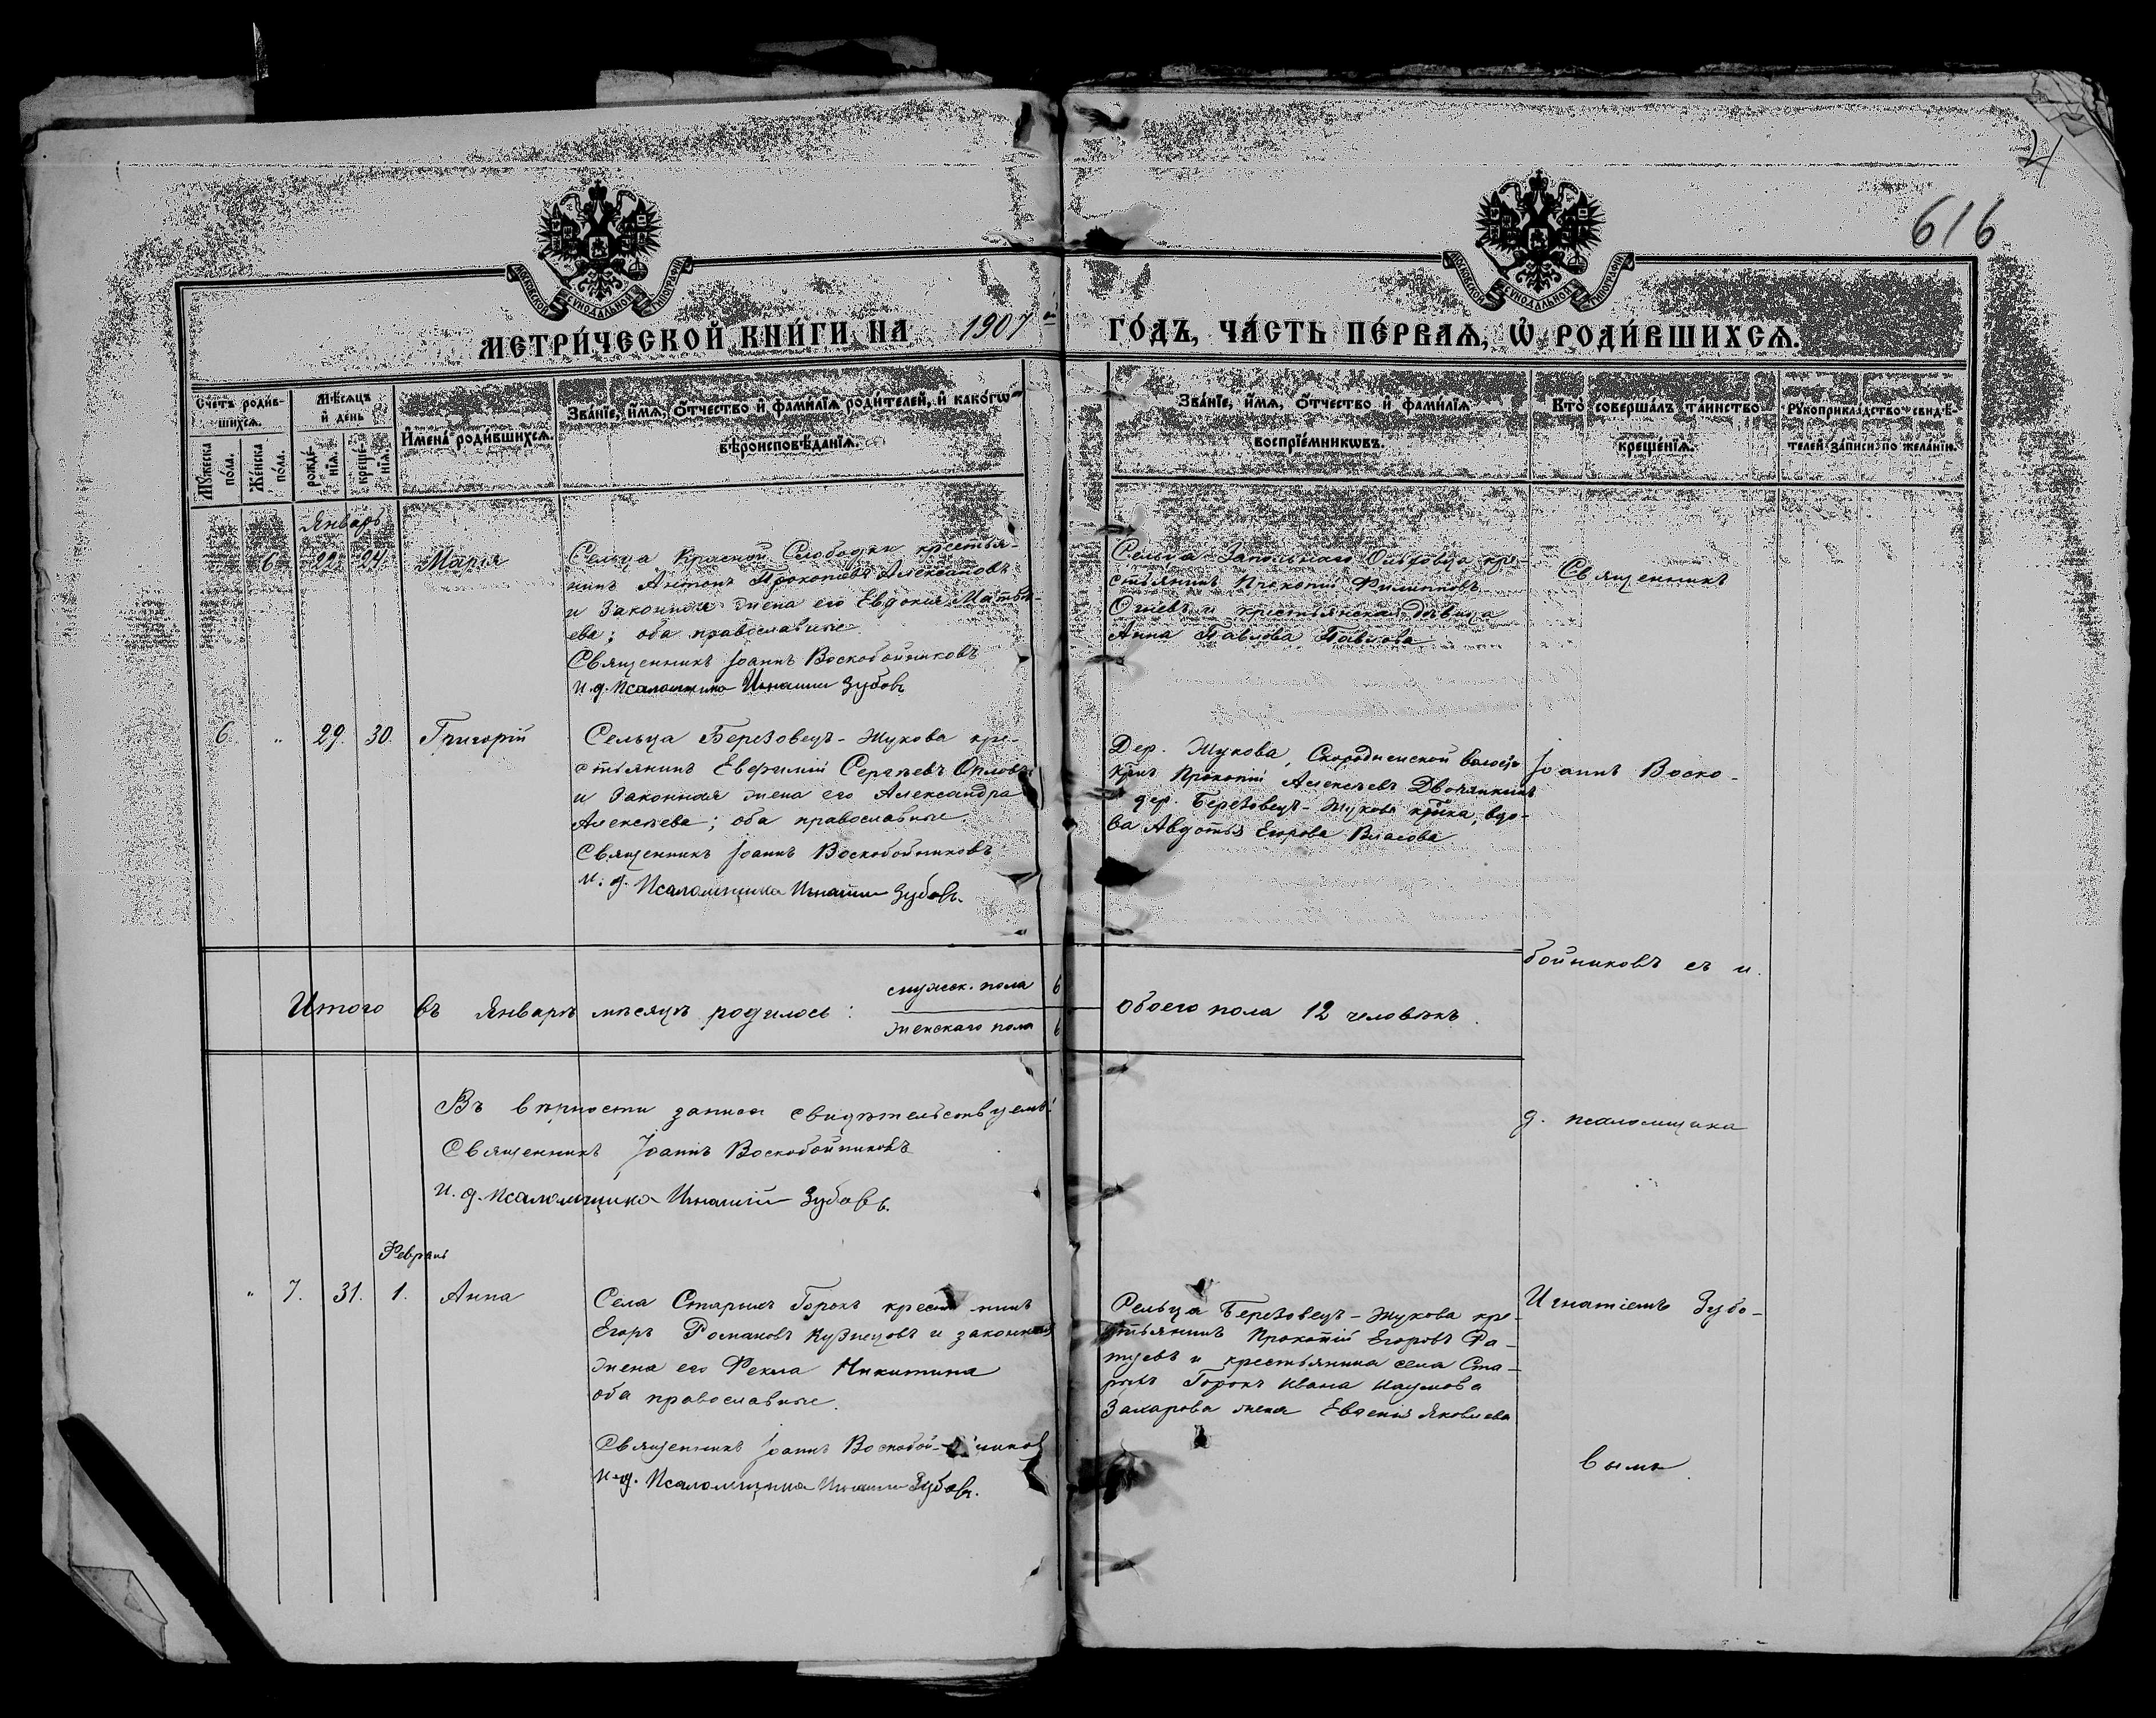 4
616
МОСКОВСКОЙ СѴНОДАЛЬНОЙ ТИПОГРАФІИ
МОСКОВСКОЙ СѴНОДАЛЬНОЙ ТИПОГРАФІИ
МЕТРИ́ЧЕСКОЙ КНИ́ГИ НА 1907й ГО́ДЪ, ЧА́СТЬ ПЕ́РВАѦ, Ѡ҆ РОДИ́ВШИХСѦ.
Счетъ роди́вшихсѧ.
Мꙋ́жеска по́ла.
Же́нска по́ла.
Мѣ́сѧцъ и҆ день
рожде́нїѧ.
креще́нїѧ.
И҆мена̀ роди́вшихсѧ.
Зва́нїе, и҆́мѧ, ѻ҆́тчество и҆ фами́лїѧ роди́телей, и҆ како́гѡ
вѣроисповѣ́данїѧ.
Зва́нїе, и҆́мѧ, ѻ҆́тчество и҆ фами́лїѧ
воспрїе́мникѡвъ.
Кто̀ соверша́лъ та́инство
креще́нїѧ.
Рꙋкоприкла́дство свидѣ́-
телей за́писи по жела́нїю.
Январь
6 22. 24. Марія
Сельца Красной Слободки крестья-
нинъ Антонъ Прокопіевъ
и законная жена его Евдокия Матвѣ-
ева; оба православные
Священникъ Іоаннъ Воскобойниковъ
И. д. Псаломщика Игнатій Зубовъ
Сельца
стьянинъ Прокопій Филипповъ
и крестьянская дѣвица
Анна Павлова Павлова
Священникъ
6. „ 29. 30. Григорій
Сельца Березовецъ-Жукова кре-
стьянинъ Евфимій Сергѣевъ Орловъ
и законная жена его Александра
Алексѣева; оба православные.
Священникъ Іоаннъ Воскобойниковъ
И. д. Псаломщика Игнатій Зубовъ.
Дер. Жукова, Скороднемской волости
Прокопій Алексѣевъ Дворянкинъ
и дер. Березовецъ-Жукова вдо-
ва Авдотья Егорова Власова
Іоаннъ Воско-
бойниковъ съ и.
Итого въ Январѣ мѣсяцѣ родилось: мужск. пола 6
женскаго пола 6
Обоего пола 12 человѣкъ.
Въ вѣрности записи свидѣтельствуемъ:
Священникъ Іоаннъ Воскобойниковъ
И. д. псаломщика Игнатій Зубовъ.
д. псаломщика
Февраль
„ 7. 31. 1. Анна
Села Старыхъ Горокъ нинъ
Егоръ Романовъ Кузнецовъ и законная
жена его Фекла Никитина
оба православные.
Священникъ Іоаннъ Воскобойниковъ
И. д. Псаломщика Игнатій Зубовъ.
Сельца Березовецъ-Жукова кре-
стьянинъ Прокопій Егоровъ
и крестьянина села Ста-
рыхъ Горокъ Ивана Наумова
Захарова жена Евгенія Яковлева
Игнатіемъ Зубо-
вымъ.